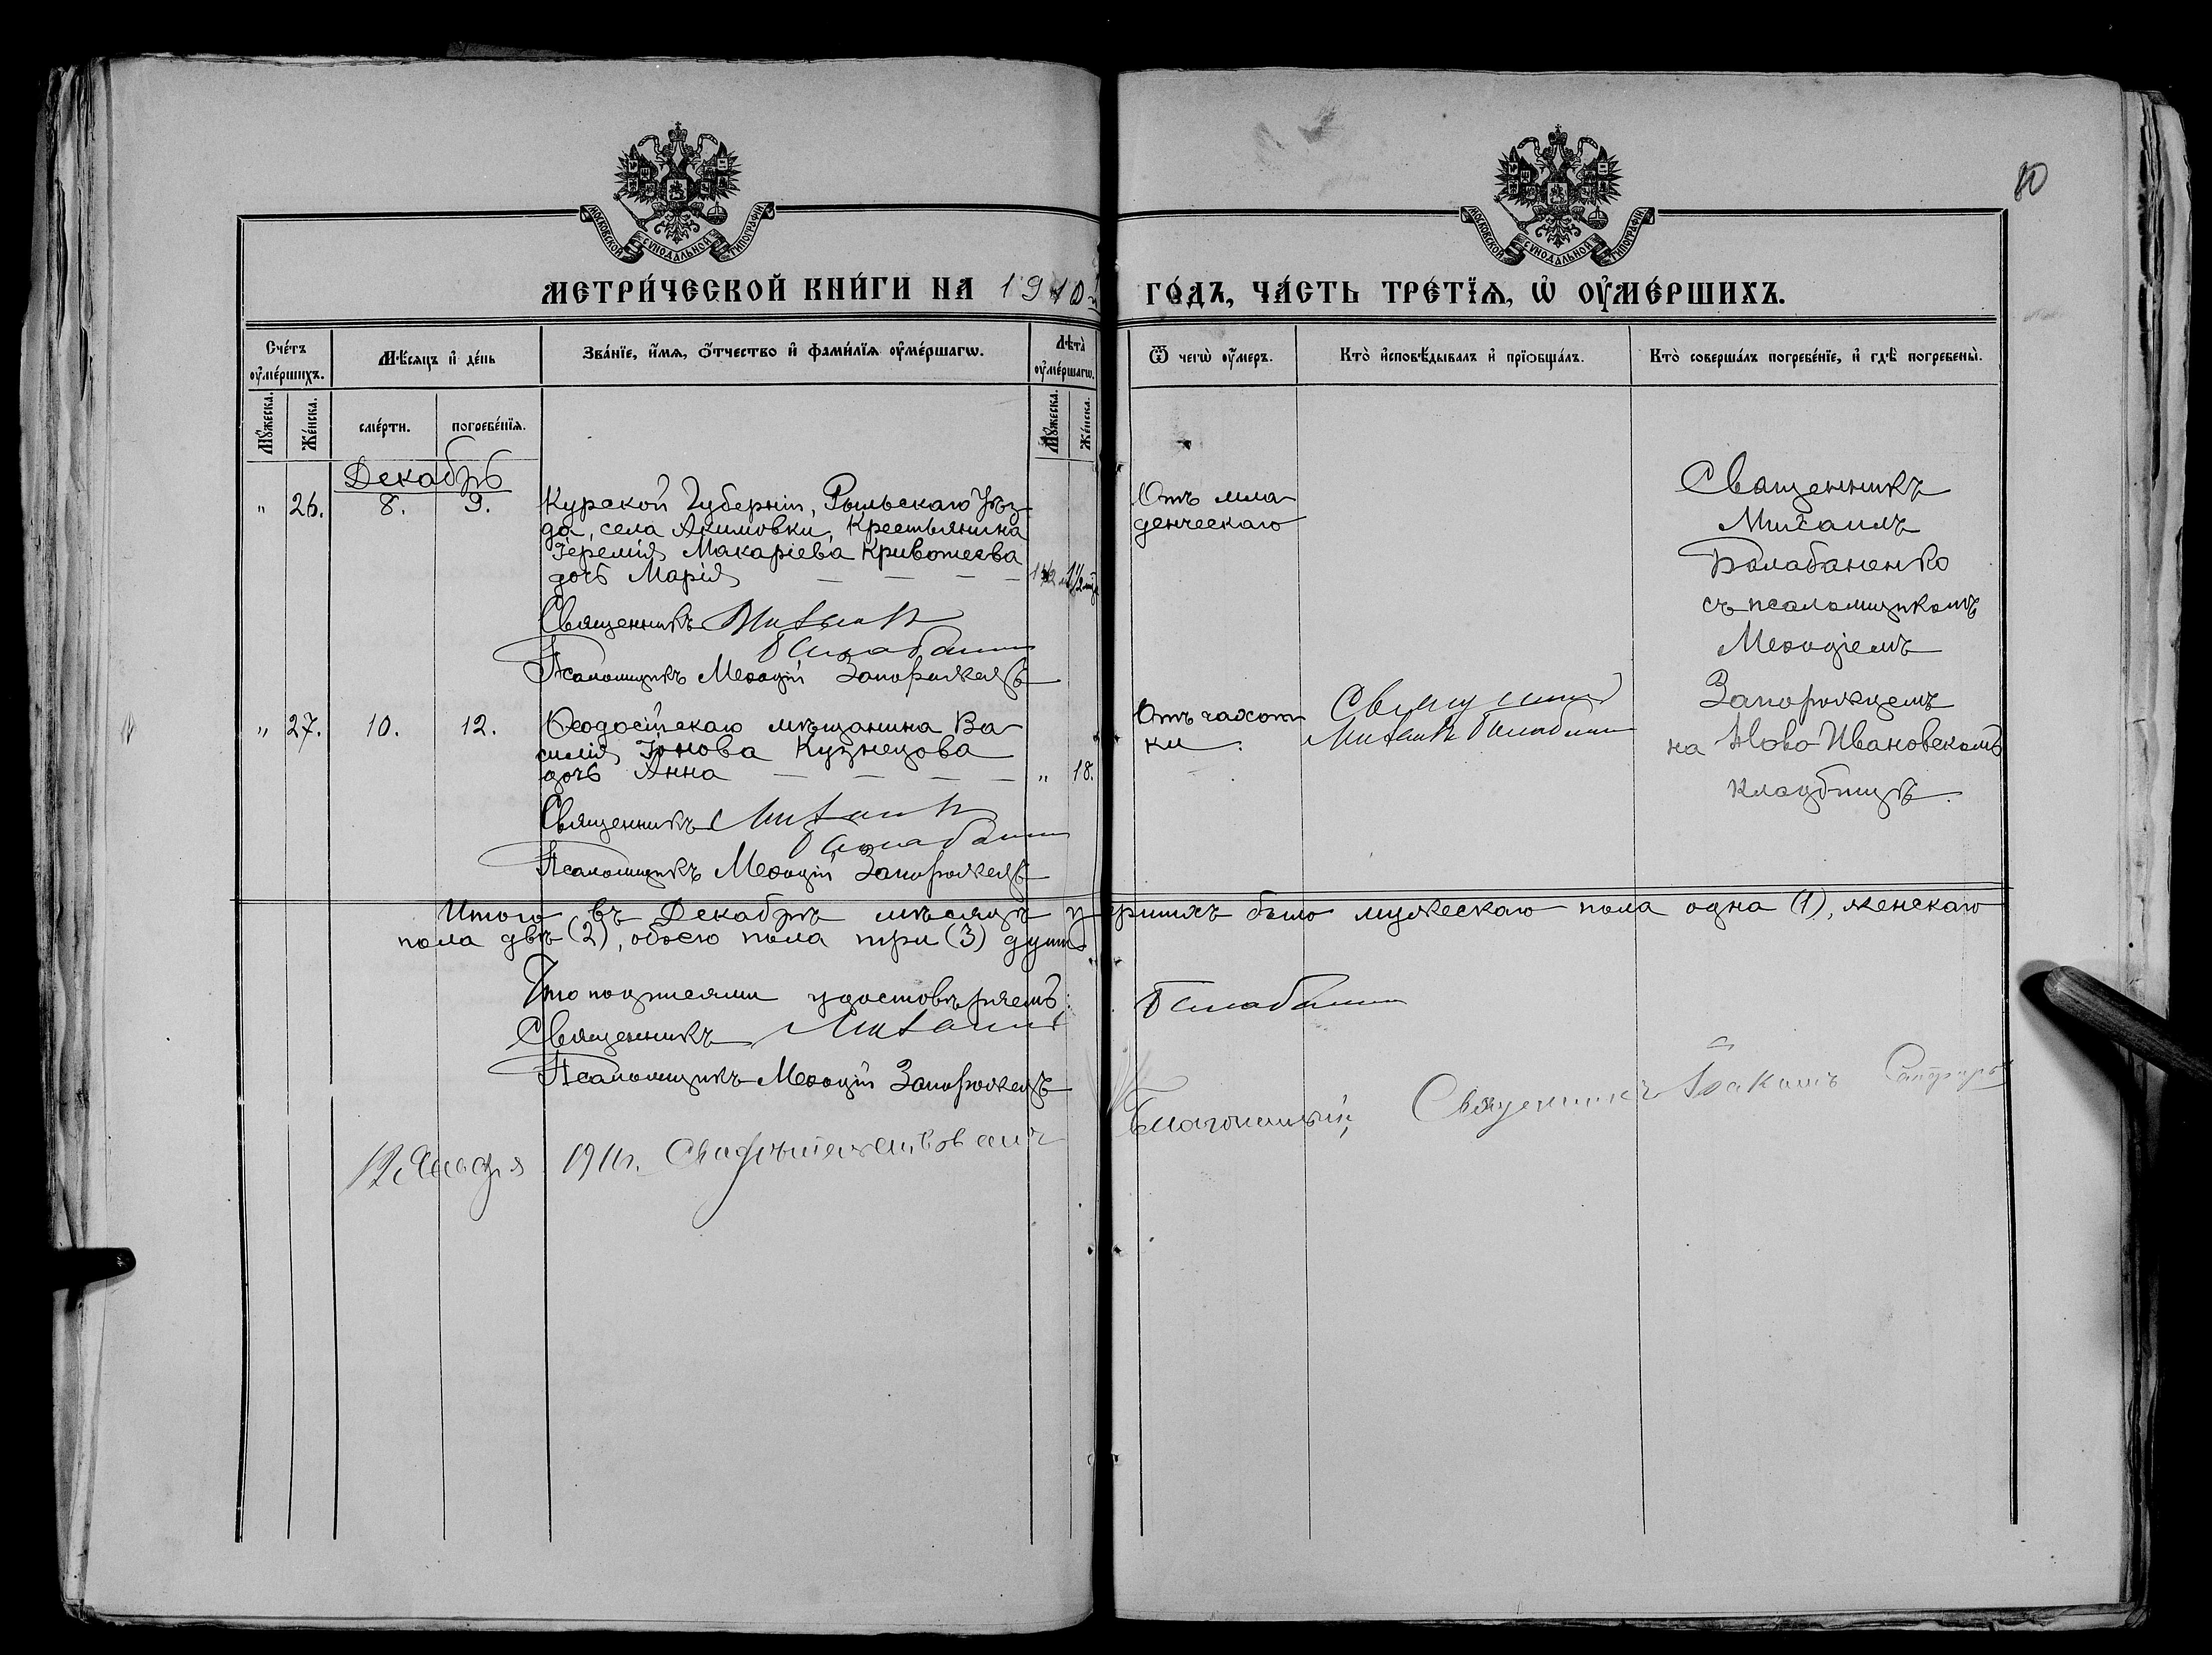 МОСКОВСКОЙ СУНОДАЛЬНОЙ ТИПОГРАФІИ
МОСКОВСКОЙ СУНОДАЛЬНОЙ ТИПОГРАФІИ
80
МЕТРИ́ЧЕСКОЙ КНИ́ГИ НА 1910
ГО́ДЪ, ЧА́СТЬ ТРЕ́ТЇѦ, Ѡ҆ ОУ҆МЕ́РШИХЪ.
Сче́тъ оу҆ме́ршихъ.
Мѣ́сяцъ и҆ де́нь
Зва́нїе, и҆́мѧ, ѻ҆́тчество и҆ фами́лїѧ оу҆ме́ршагѡ.
Лѣта̀ оу҆ме́ршагѡ.
Ѿ чегѡ̀ оу҆́меръ.
Кто̀ и҆сповѣ́дывалъ и҆ прїѡбща́лъ.
Кто̀ соверша́лъ погребе́нїе, и҆ гдѣ̀ погребены̀.
Мꙋ́жеска.
Же́нска.
сме́рти.
погребе́нїѧ.
Мꙋ́жеска.
Же́нска.
Декабрь
" 26. 8. 9.
Курской Губерніи, Рыльскаго Уѣз-
да, села Акимовки, Крестьянина
Іереміи Макаріева Кривошеева
дочь Марія
Священникъ Михаилъ
Балабаненко
Псаломщикъ Меѳодій Запорожецъ
Отъ мла-
денческаго
Священникъ
Михаилъ
Балабаненко
съ псаломщикомъ
Меѳодіемъ
Запорожцемъ
на Ново Ивановскомъ
кладбищѣ.
" 27. 10. 12.
Ѳеодосійскаго мѣщанина Ва-
силія Іонова Кузнецова
дочь Анна " 18.
Священникъ Михаилъ
Балабаненко
Псаломщикъ Меѳодій Запорожецъ
Отъ чахот-
ки.
Священникъ
Михаилъ Балабаненко
Итого въ Декабрѣ мѣсяцѣ умершихъ было мужескаго пола одна (1), женскаго
пола двѣ (2), обоего пола три (3) души.
Что подписями удостовѣряемъ:
Священникъ Михаилъ Балабаненко
Псаломщикъ Меѳодій Запорожецъ
12 Января 1911г. Свидѣтельствовалъ
Благочинный, Священникъ Іоакимъ